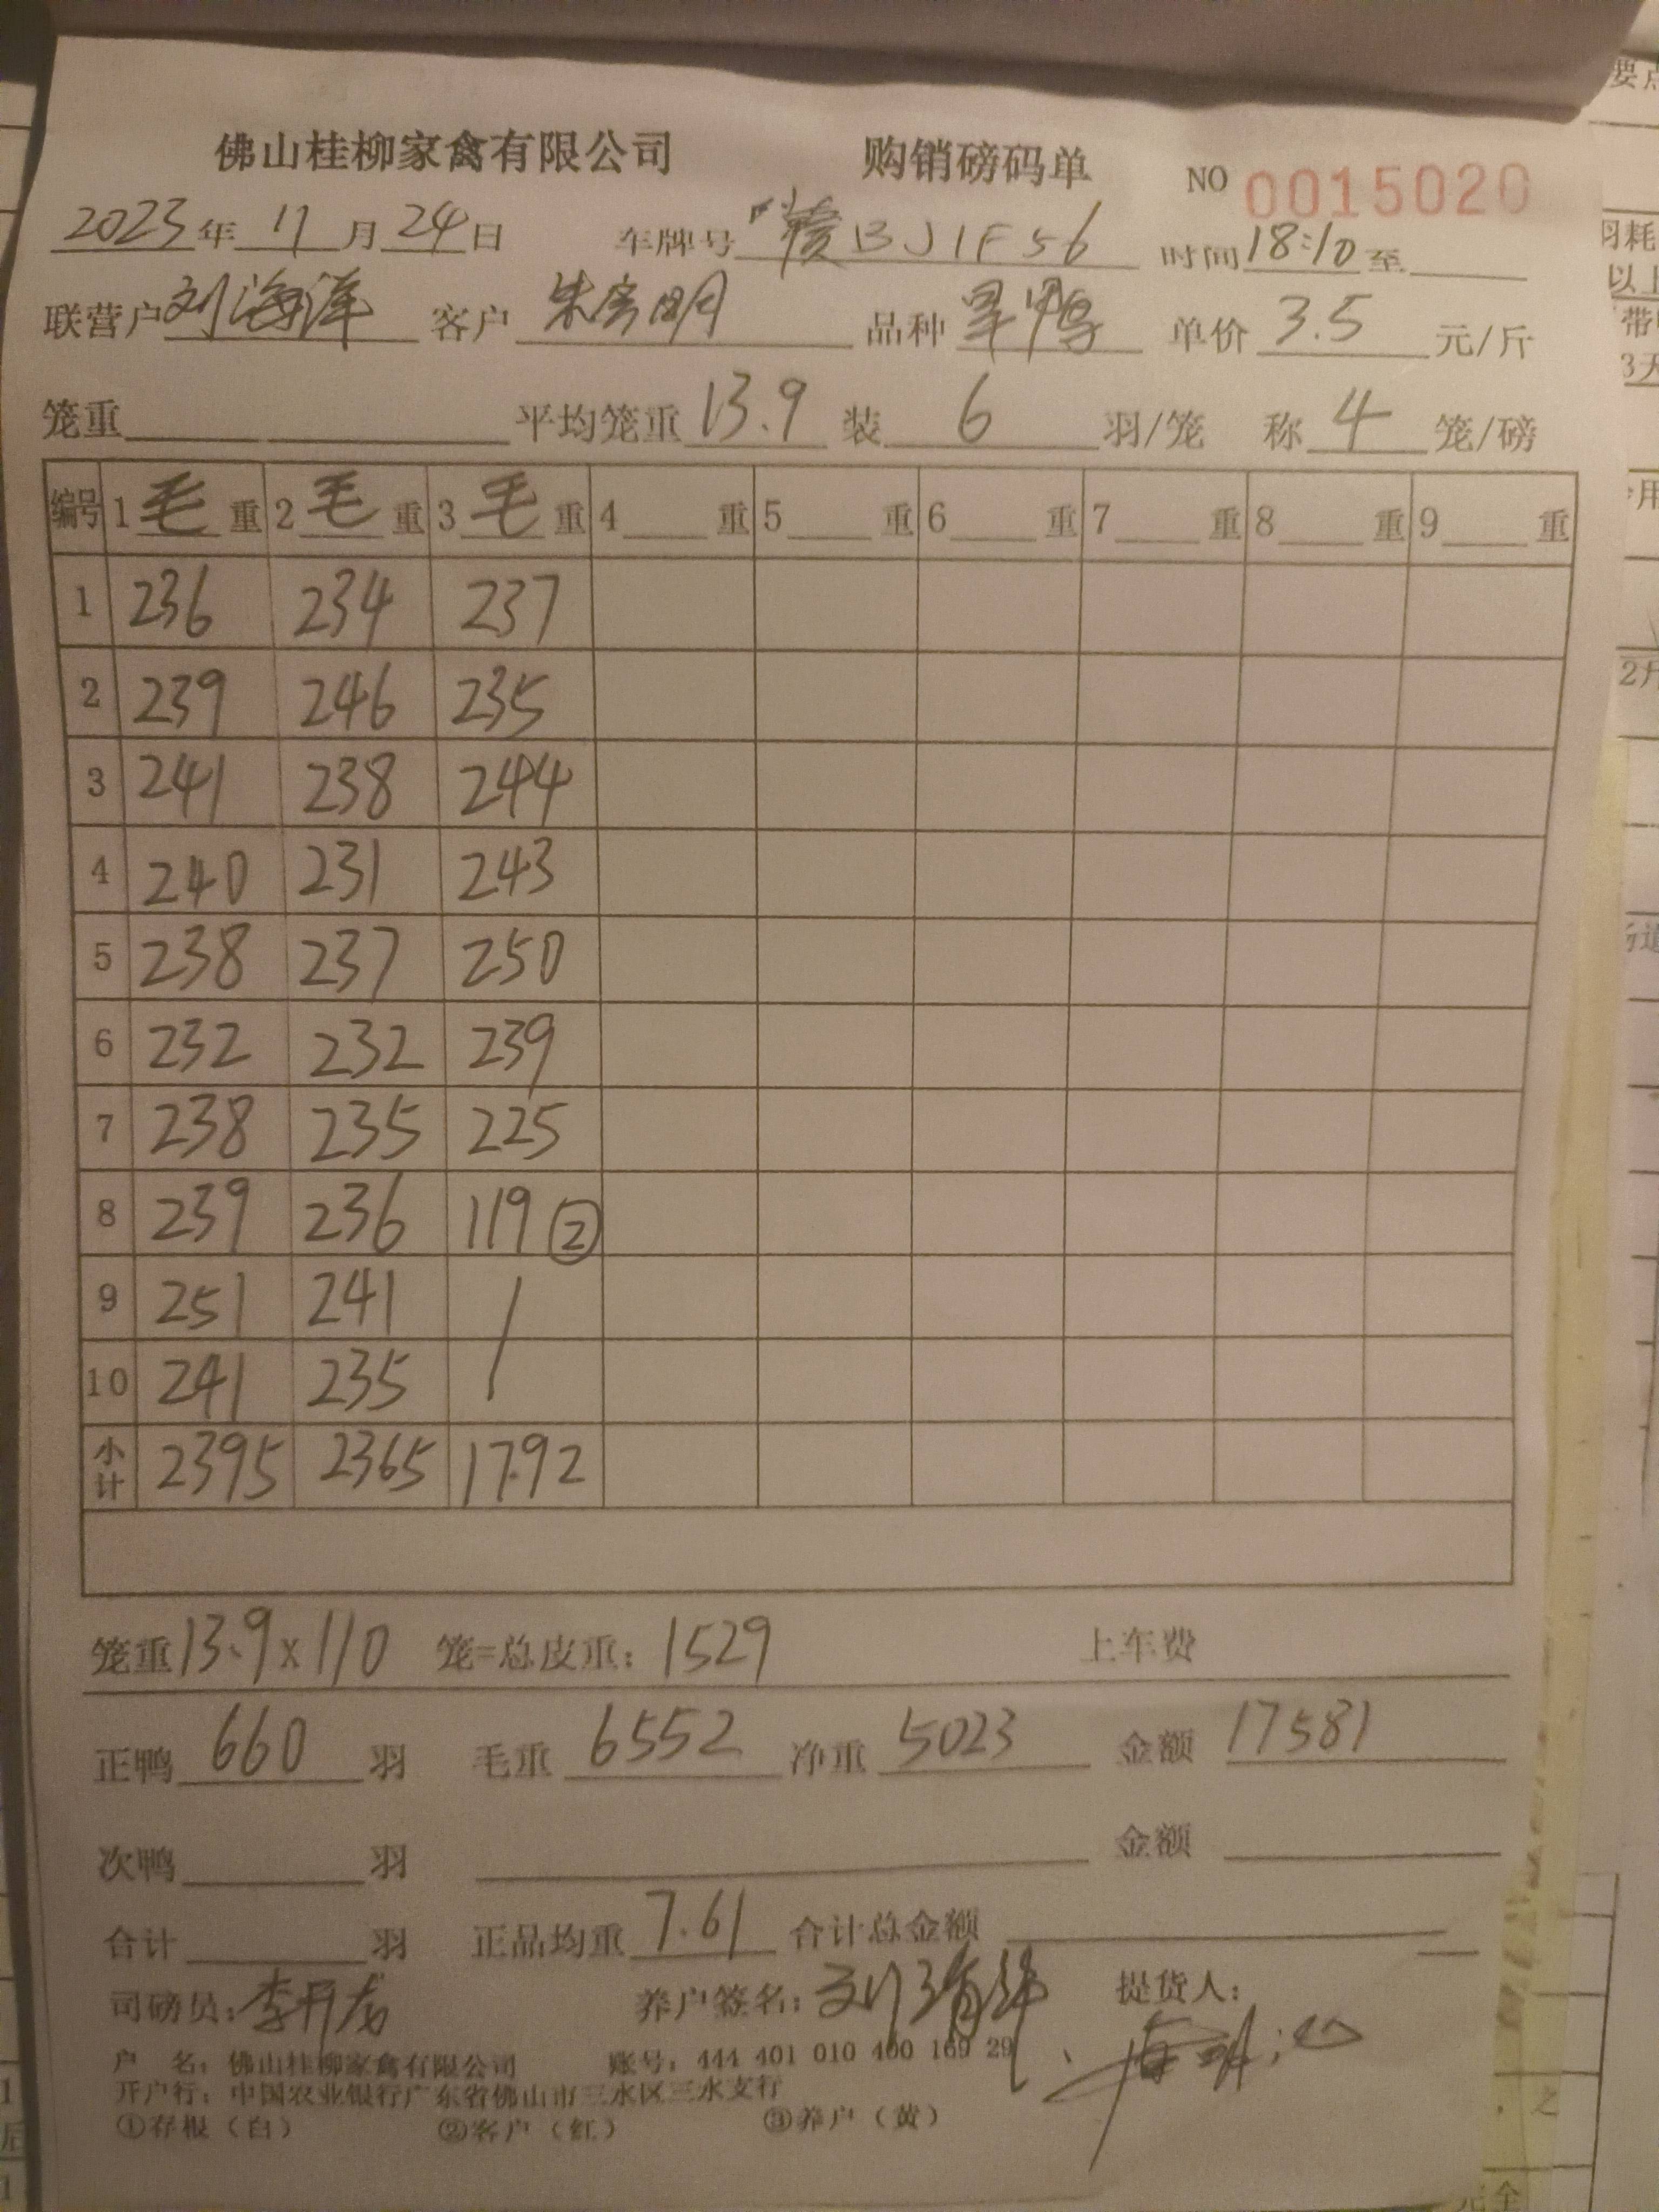 佛山桂柳家禽有限公司 购销磅码单 NO 0015020
2023年 11月 24日 车牌号 赣BJ1F56 时间 18:10 至
联营户 刘海洋 客户 朱房明 品种 旱鸭 单价 3.5 元/斤
笼重 平均笼重 13.9 装 6 羽/笼 称 4 笼/磅
编号 1 毛 重 2 毛 重 3 毛 重 4 重 5 重 6 重 7 重 8 重 9 重
1 236 234 237
2 239 246 235
3 241 238 244
4 240 231 243
5 238 237 250
6 232 232 239
7 238 235 225
8 239 236 119 ②
9 251 241 /
10 241 235
小计 2395 2365 1792
笼重 13.9 x 110 笼=总皮重: 1529 上车费
正鸭 660 羽 毛重 6552 净重 5023 金额 17581
次鸭 羽 金额
合计 羽 正品均重 7.61 合计总金额
司磅员: 李开龙 养户签名: 刘海洋 提货人:
户 名: 佛山桂柳家禽有限公司 账号: 444 401 010 400 169 29
开户行: 中国农业银行广东省佛山市三水区三水支行
①存根（白） ②客户（红） ③养户（黄）